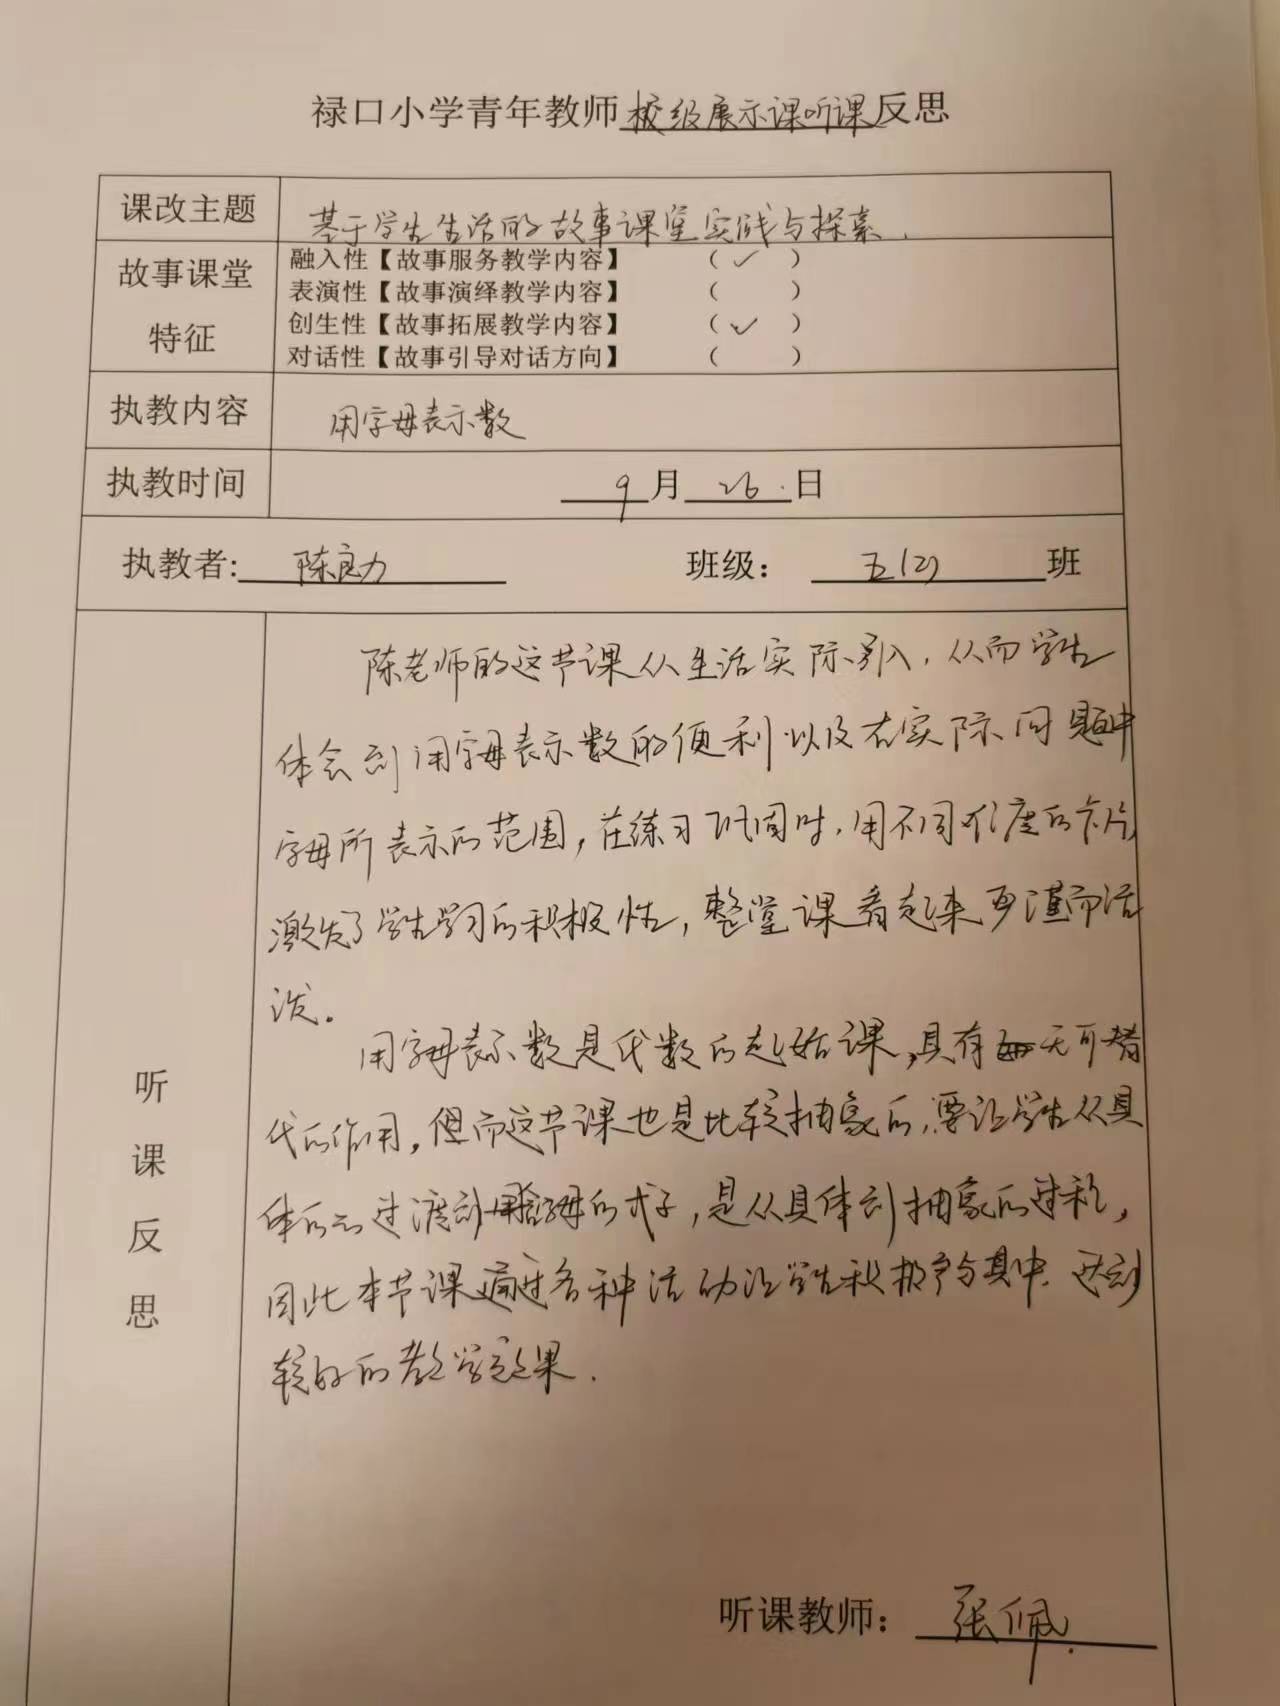 禄口小学青年教师校级展示课听课反思
课改主题 基于学生生活的故事课堂实践与探索.
故事课堂特征
融入性【故事服务教学内容】 （ ✓ ）
表演性【故事演绎教学内容】 （ ）
创生性【故事拓展教学内容】 （ ✓ ）
对话性【故事引导对话方向】 （ ）
执教内容 用字母表示数
执教时间 9月26.日
执教者: 陈良力 班级： 五(2) 班
听课反思
陈老师的这节课从生活实际引入，从而学生
体会到用字母表示数的便利以及在实际问题中
字母所表示的范围，在练习巩固时，用不同难度的卡片
激发了学生学习的积极性，整堂课看起来严谨而活
泼。
用字母表示数是代数的起始课，具有无可替
代的作用，但而这节课也是比较抽象的，要让学生从具
体的过渡到含字母的式子，是从具体到抽象的过程，
因此本节课通过各种活动让学生积极参与其中，达到
较好的教学效果.
听课教师： 张佩.